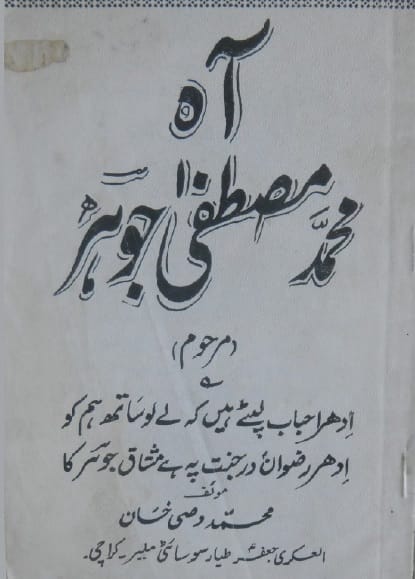 آہ
محمدؐ مصطفیٰ جوہرؔ
(مرحوم)
اِدھر احباب لپٹے ہیں کہ لے لو ساتھ ہم کو
اِدھر رضواں درِ جنت پہ ہے مشتاق جوہر کا
مولف
محمد وصی خان
العسکری جعفر طیار سوسائٹی ملیر۔ کراچی۔